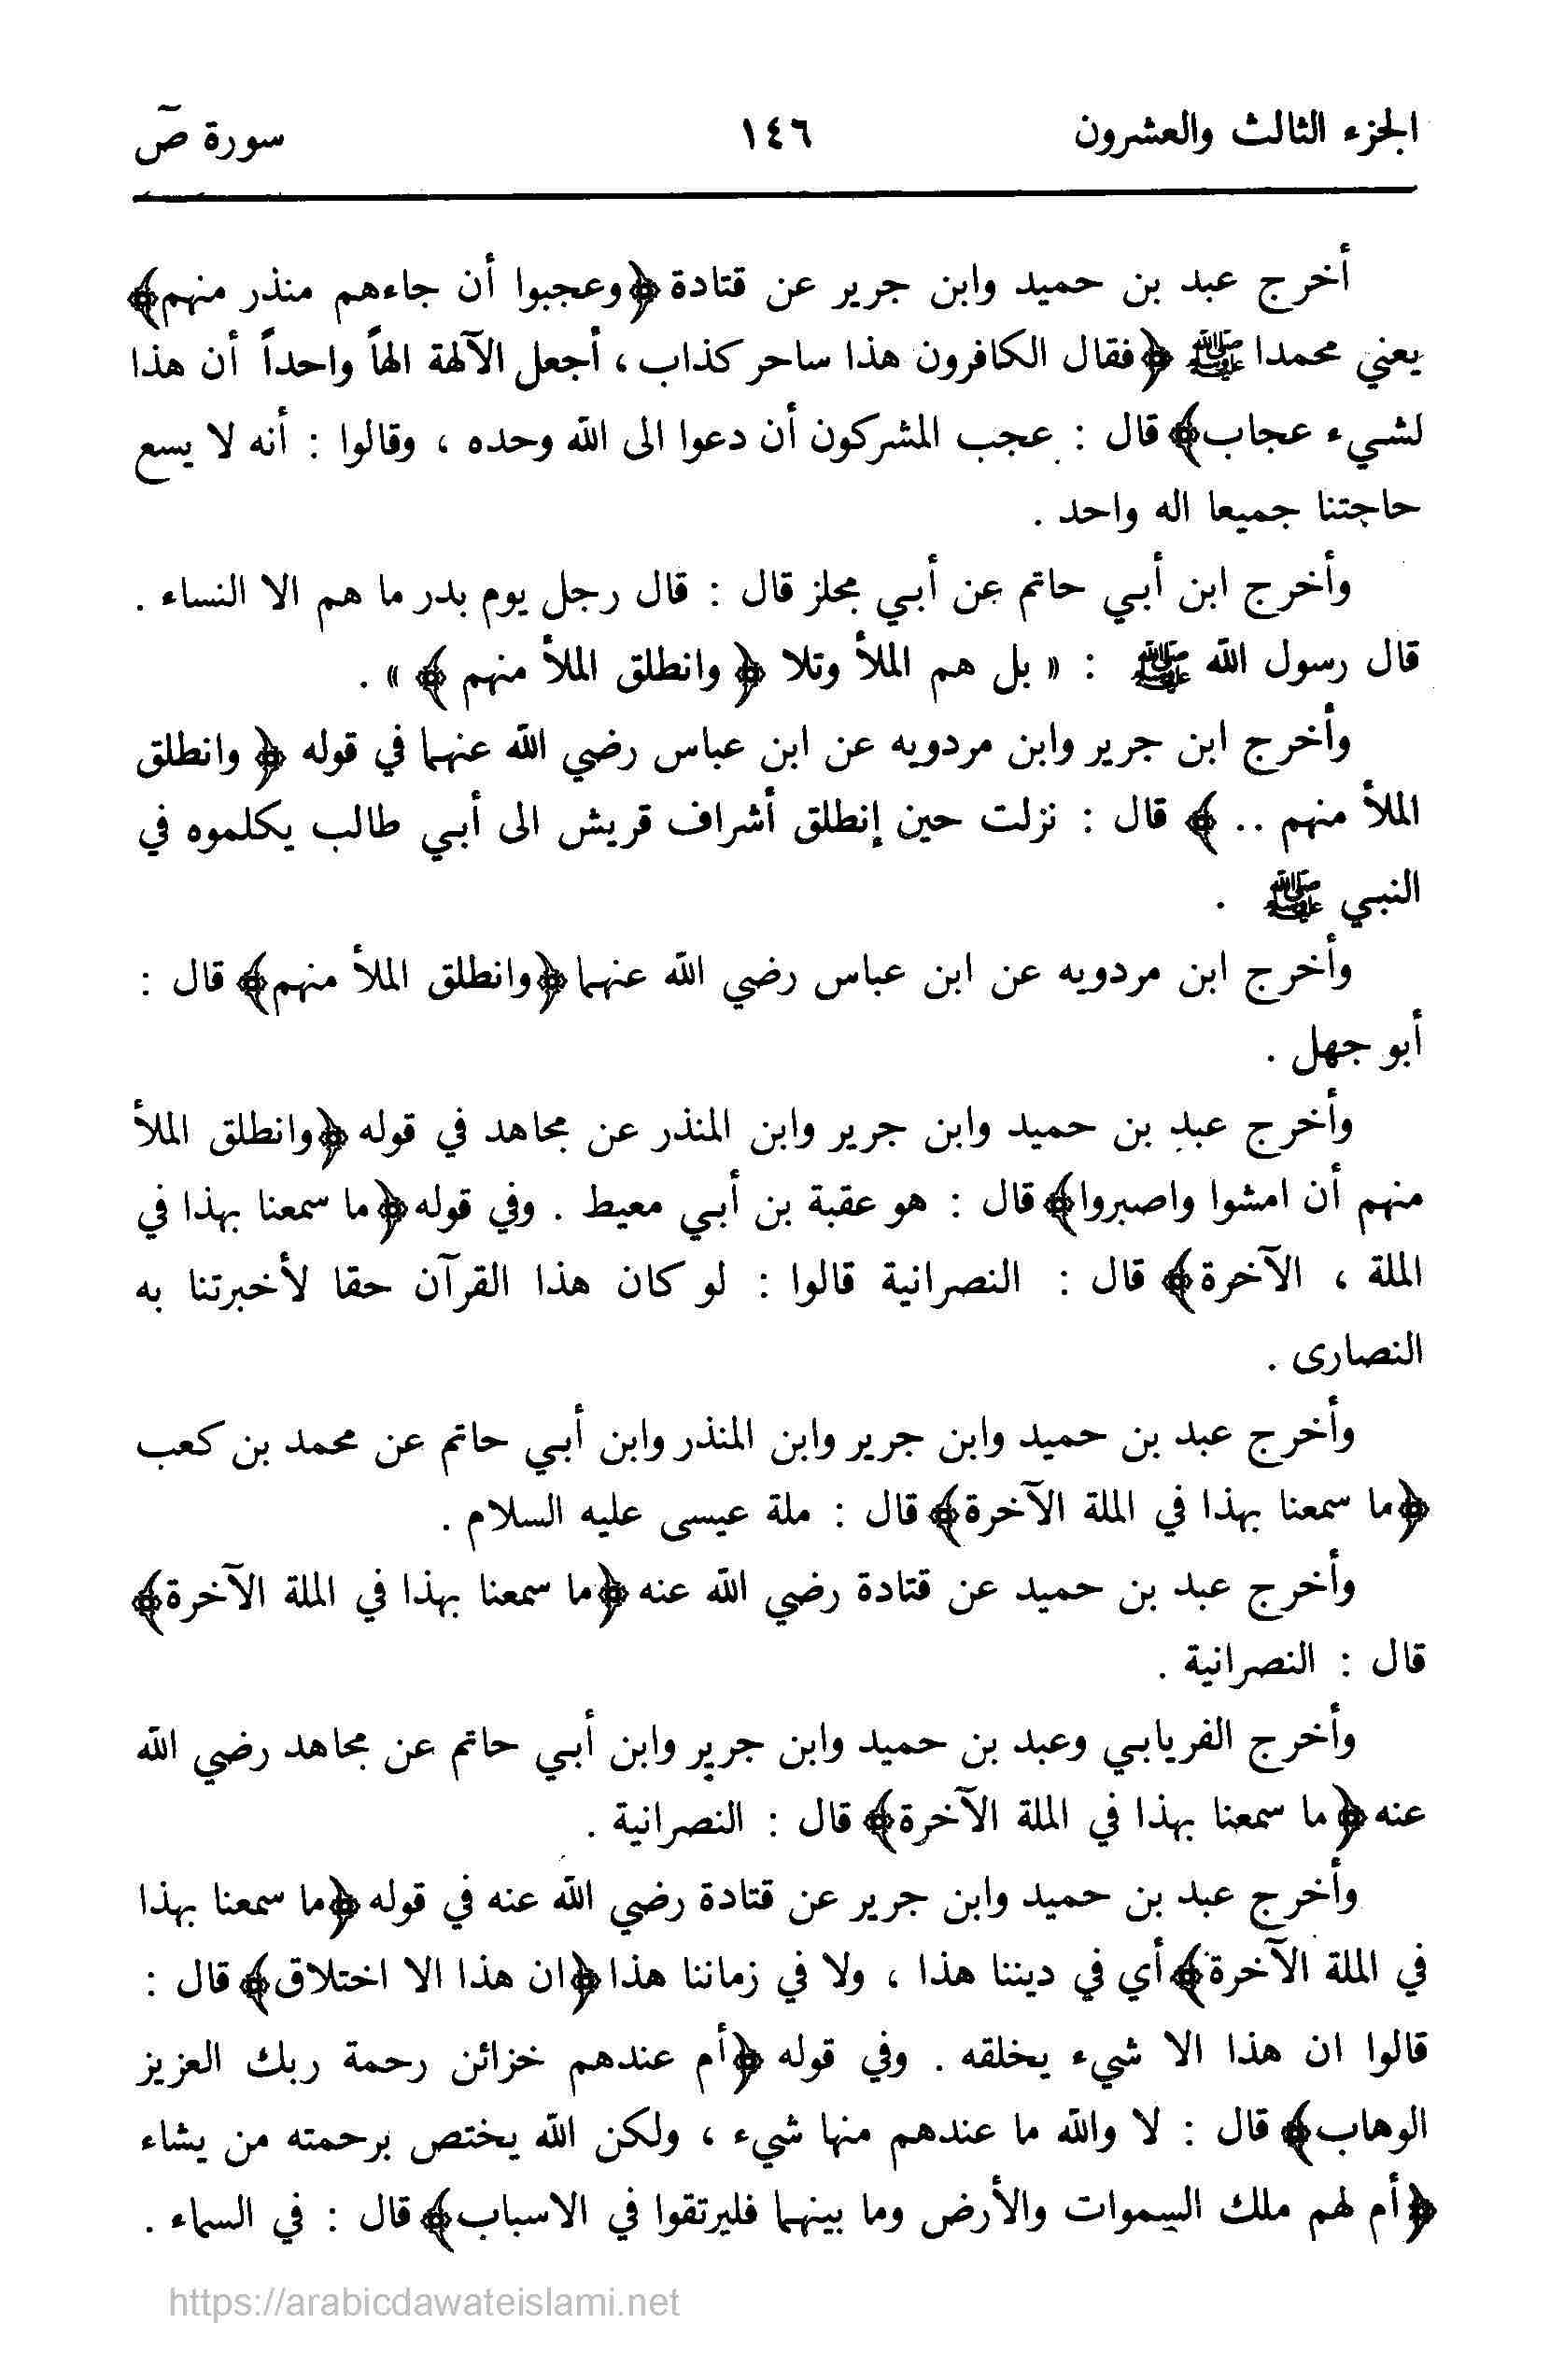 الجزء الثالث والعشرون ١٤٦ سورة صٓ
أخرج عبد بن حميد وابن جرير عن قتادة ﴿وعجبوا أن جاءهم منذر منهم﴾
يعني محمدا ﷺ ﴿فقال الكافرون هذا ساحر كذاب ، أجعل الآلهة الهاً واحداً أن هذا
لشيء عجاب﴾ قال : عجب المشركون أن دعوا الى الله وحده ، وقالوا : أنه لا يسع
حاجتنا جميعا اله واحد .
وأخرج ابن أبي حاتم عن أبي مجلز قال : قال رجل يوم بدر ما هم الا النساء .
قال رسول الله ﷺ : « بل هم الملأ وتلا ﴿ وانطلق الملأ منهم ﴾ » .
وأخرج ابن جرير وابن مردويه عن ابن عباس رضي الله عنهما في قوله ﴿ وانطلق
الملأ منهم .. ﴾ قال : نزلت حين إنطلق أشراف قريش الى أبي طالب يكلموه في
النبي ﷺ .
وأخرج ابن مردويه عن ابن عباس رضي الله عنهما ﴿وانطلق الملأ منهم﴾ قال :
أبو جهل .
وأخرج عبد بن حميد وابن جرير وابن المنذر عن مجاهد في قوله ﴿وانطلق الملأ
منهم أن امشوا واصبروا﴾ قال : هو عقبة بن أبي معيط . وفي قوله ﴿ما سمعنا بهذا في
الملة ، الآخرة﴾ قال : النصرانية قالوا : لو كان هذا القرآن حقا لأخبرتنا به
النصارى .
وأخرج عبد بن حميد وابن جرير وابن المنذر وابن أبي حاتم عن محمد بن كعب
﴿ما سمعنا بهذا في الملة الآخرة﴾ قال : ملة عيسى عليه السلام .
وأخرج عبد بن حميد عن قتادة رضي الله عنه ﴿ما سمعنا بهذا في الملة الآخرة﴾
قال : النصرانية .
وأخرج الفريابي وعبد بن حميد وابن جرير وابن أبي حاتم عن مجاهد رضي الله
عنه ﴿ما سمعنا بهذا في الملة الآخرة﴾ قال : النصرانية .
وأخرج عبد بن حميد وابن جرير عن قتادة رضي الله عنه في قوله ﴿ما سمعنا بهذا
في الملة الآخرة﴾ أي في ديننا هذا ، ولا في زماننا هذا ﴿ان هذا الا اختلاق﴾ قال :
قالوا ان هذا الا شيء يخلقه . وفي قوله ﴿أم عندهم خزائن رحمة ربك العزيز
الوهاب﴾ قال : لا والله ما عندهم منها شيء ، ولكن الله يختص برحمته من يشاء
﴿أم لهم ملك السموات والأرض وما بينهما فليرتقوا في الاسباب﴾ قال : في السماء .
https://arabicdawateislami.net